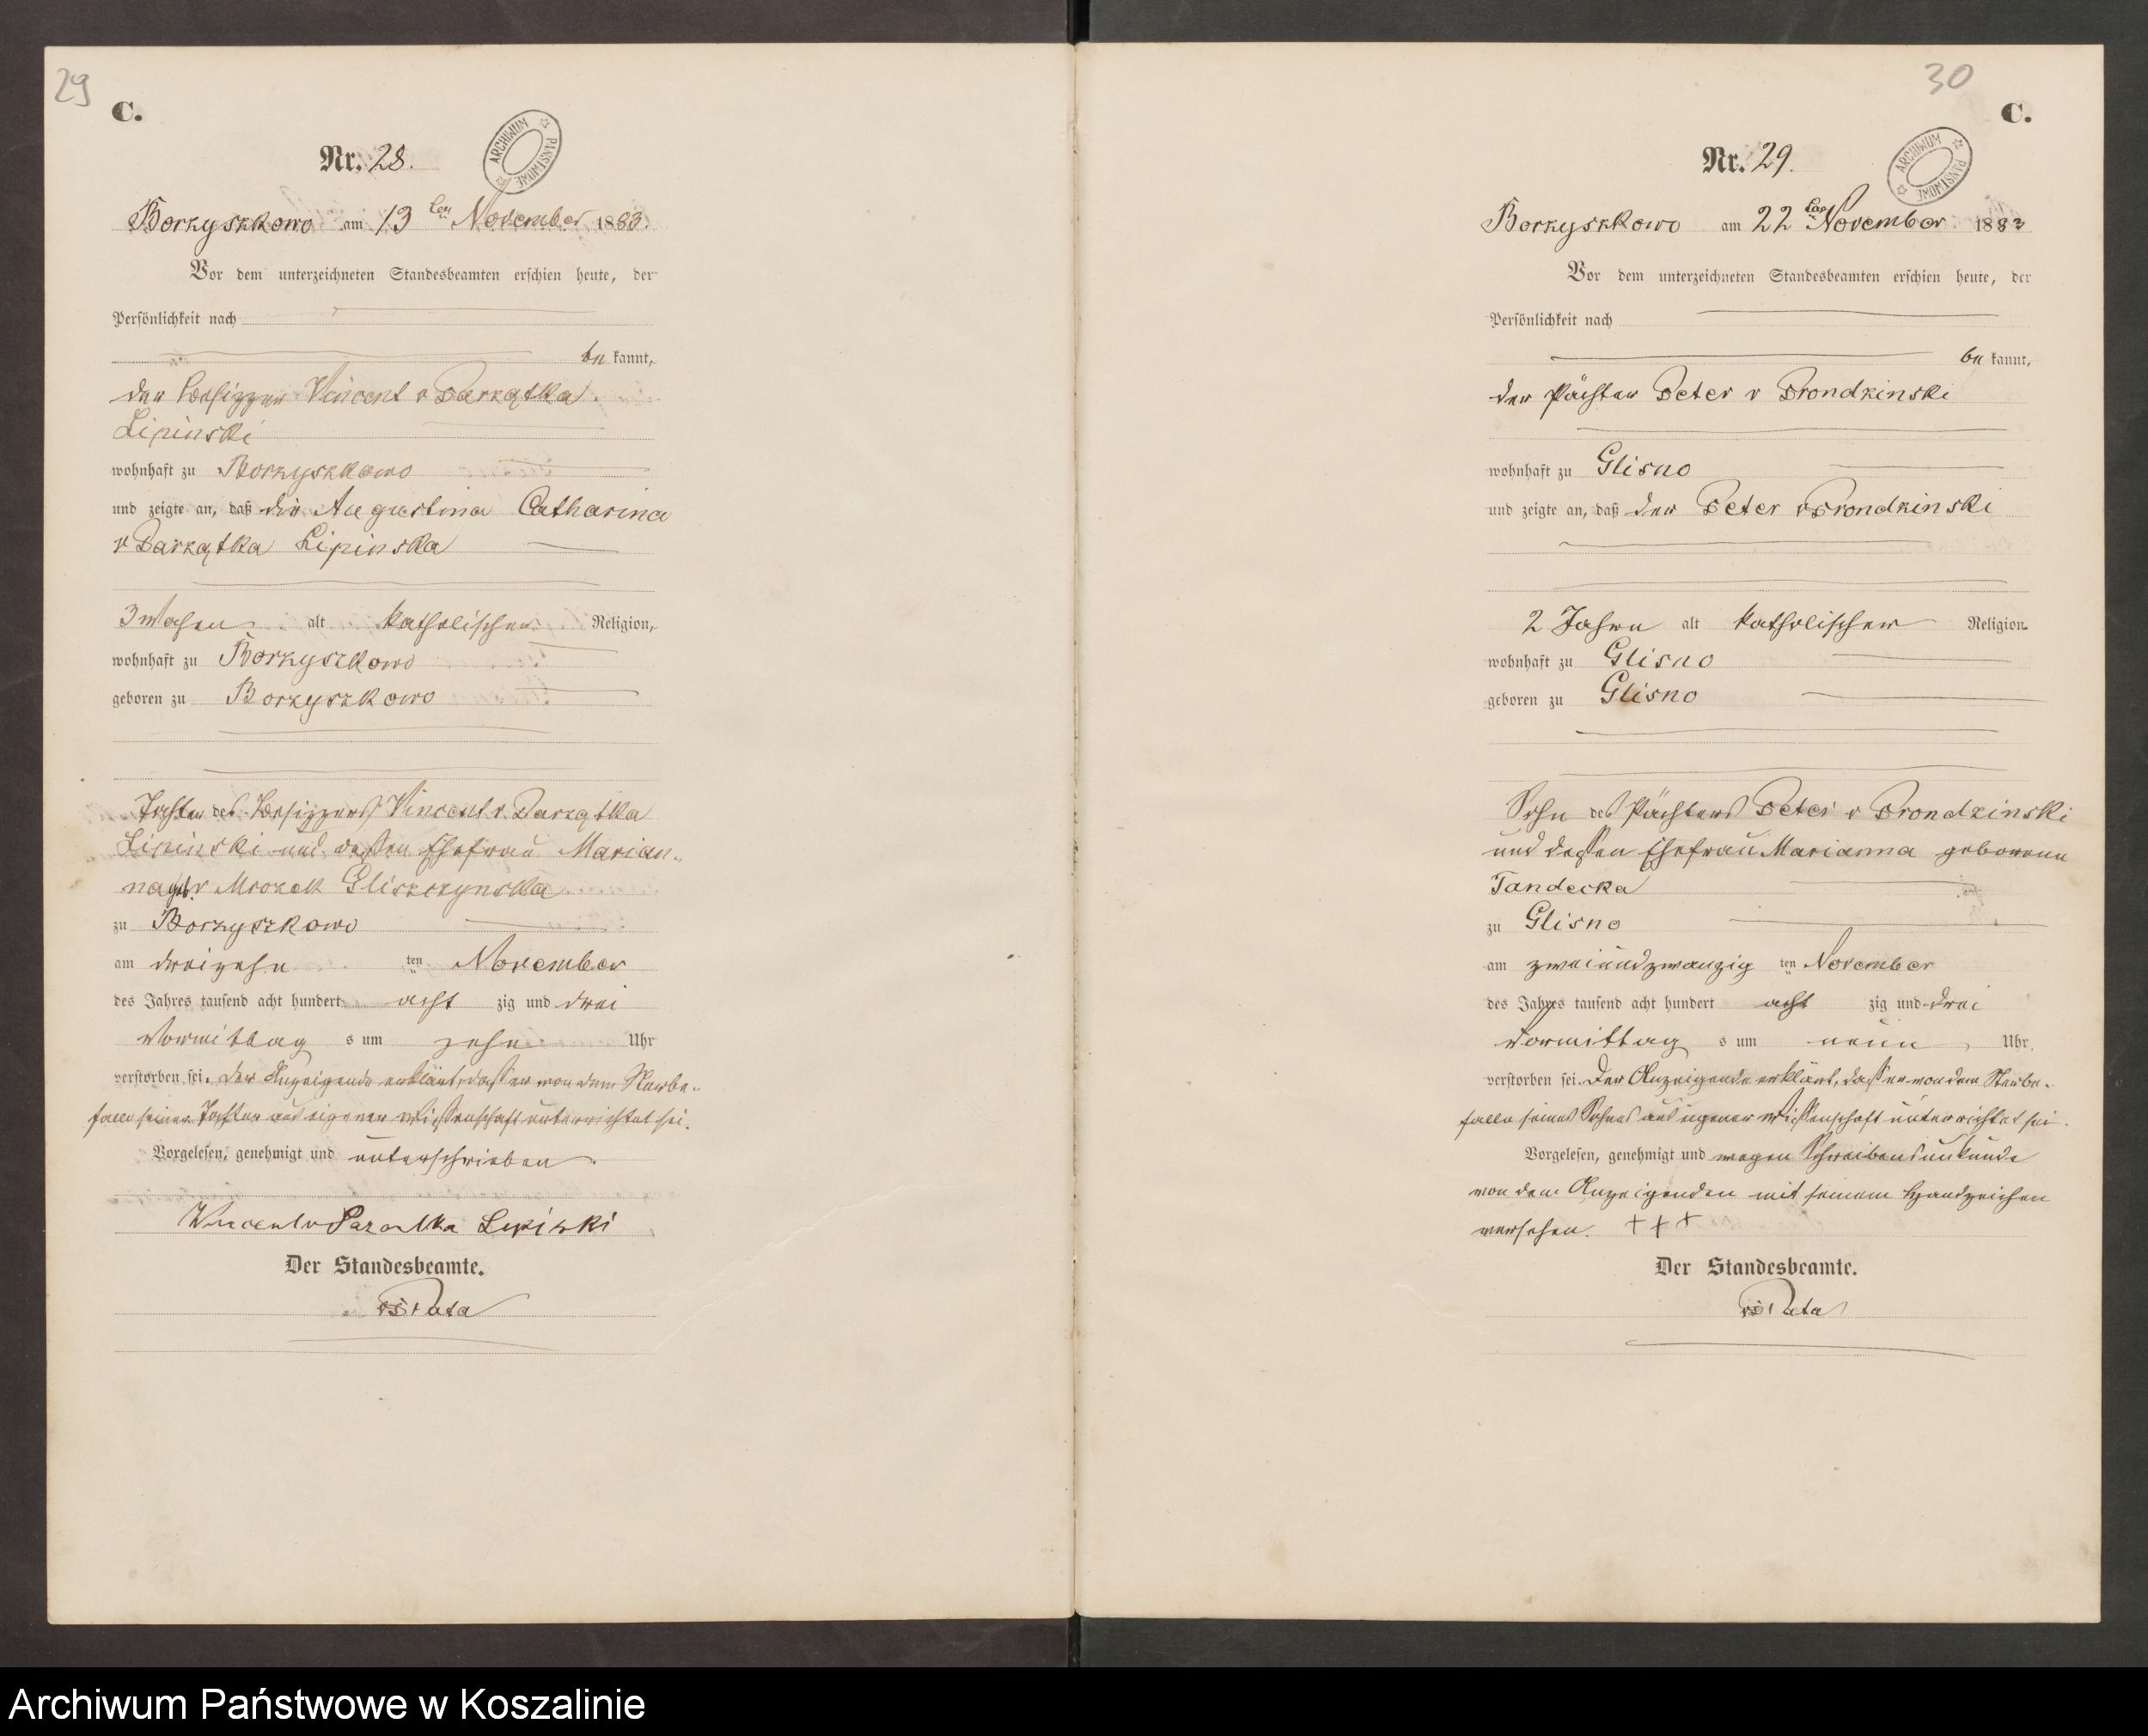 29
C.
ARCHIWUM PAŃSTWOWE
Nr. 28.
Borzyszkowo am 13 ten November 1883.
Vor dem unterzeichneten Standesbeamten erschien heute, der
Persönlichkeit nach
be kannt,
der Besizzer Vincent v Parzątka
Lipinski
wohnhaft zu Borzyszkowo
und zeigte an, daß die Augustina Catharina
v Parzątka Lipinska
3 Wochen alt katholischer Religion,
wohnhaft zu Borzyszkowo
geboren zu Borzyszkowo
Tochter des Besizzers Vincent v. Parzątka
Lipinski und dessen Ehefrau Marian-
na geb. v Mrozek Gliszczynska
zu Borzyszkowo
am dreizehn ten November
des Jahres tausend acht hundert acht zig und drei
Vormittag s um zehn Uhr
verstorben sei. Der Anzeigende erklärt, dass er von dem Sterbe-
falle seiner Tochter aus eigener Wissenschaft unterrichtet sei.
Vorgelesen, genehmigt und unterschrieben.
Vincent v Parzatka Lipiński
Der Standesbeamte.
30
C.
ARCHIWUM PAŃSTWOWE
Nr. 29.
Borzyszkowo am 22 ten November 1883
Vor dem unterzeichneten Standesbeamten erschien heute, der
Persönlichkeit nach
be kannt,
der Pächter Peter v Prondzinski
wohnhaft zu Glisno
und zeigte an, daß der Peter v Prondzinski
2 Jahre alt katholischer Religion
wohnhaft zu Glisno
geboren zu Glisno
Sohn des Pächters Peter v Prondzinski
und dessen Ehefrau Marianna geborene
Tandecka
zu Glisno
am zweiundzwanzig ten November
des Jahres tausend acht hundert acht zig und drei
Vormittag s um neun Uhr.
verstorben sei. Der Anzeigende erklärt, dass er von dem Sterbe-
falle seines Sohnes aus eigener Wissenschaft unterrichtet sei.
Vorgelesen, genehmigt und wegen Schreibensunkunde
von dem Anzeigenden mit seinem Handzeichen
versehen. + + +
Der Standesbeamte.
Archiwum Państwowe w Koszalinie